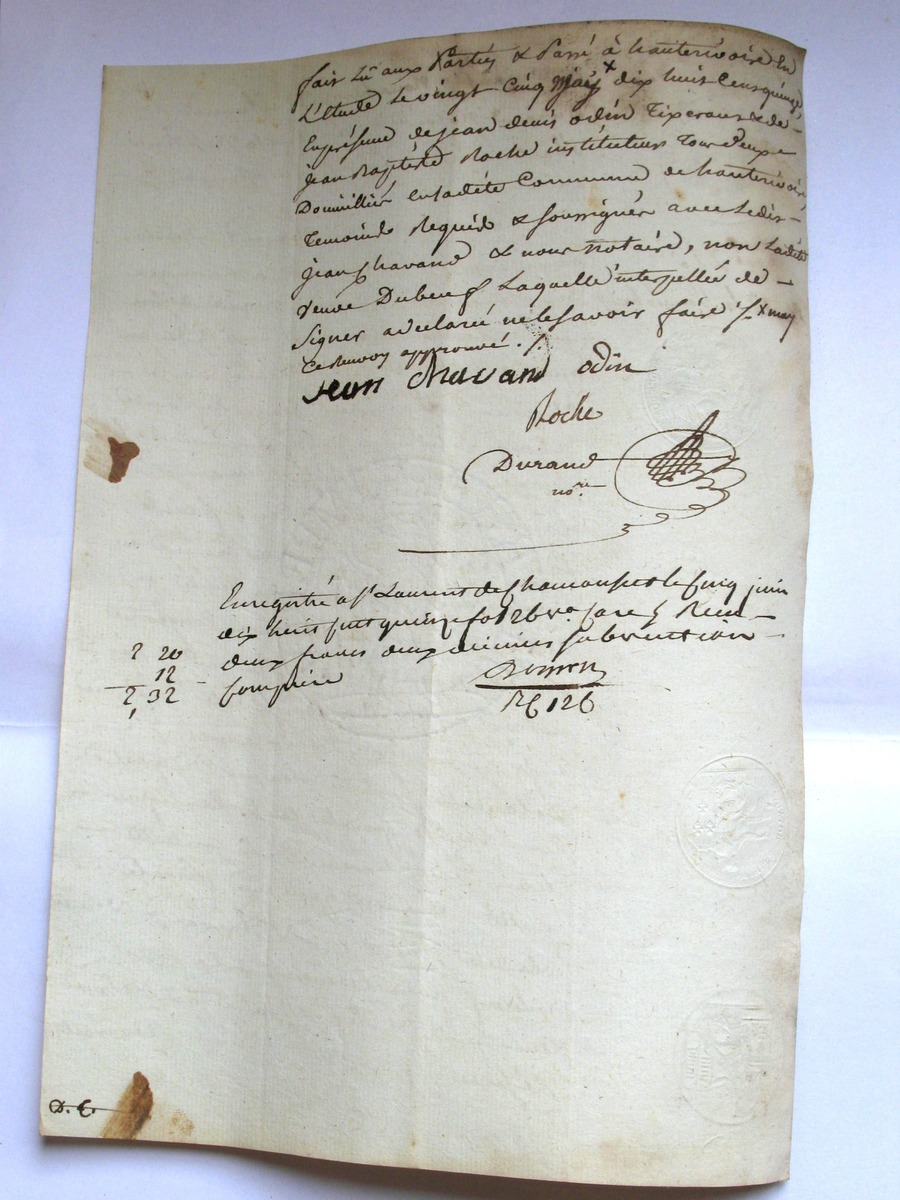 fait lû aux Parties & Passé à hauterivoire En
L'étude Le vingt Cinq maÿ x dix huit Cens quinze,
En présence de jean denis odin Tixerant & de
jean Baptiste Roche instituteur Tous deux
Domicilliés en ladite Commune de hauterivoire
Temoinds Requis & soussignés avec Ledit
jean Chavand & nous notaire, non Ladite
Veuve Dubeuf Laquelle interpellée de
Signer a declaré ne le savoir faire ./. x may
Ce Renvoy approuvé ./.
jean Chavand odin
Roche
Durand
no.re
Enregistré a St Laurent de Chamousset le cinq juin
dix huit cent quinze fo 126 vo Case 5 Reçu
deux francs deux décimes subvention
Comprise
2 20
12
2, 32
R 126
D. C.